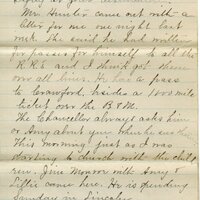 Mr. Hunter came out with a
letter for me one night last
week. He said he had written
for passes for himself to all the
R.R.S and I think got them
over all lines. He has a pass
to Crawford, besides a 1000 mile
ticket over the B & M.
The Chancellor always asks him
or Amy about you when he sees them
This morning just as I was
starting to church with the child
ren. Jim Monroe with Amy &
Lillie came here. He is spending
Sunday in Lincoln